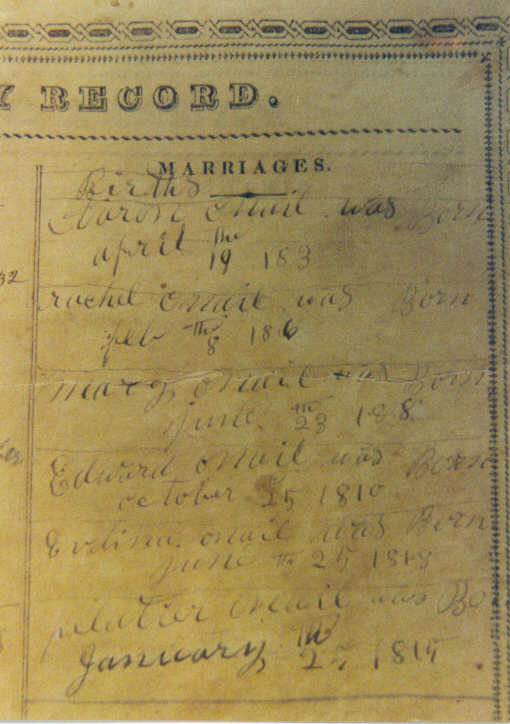 Y RECORD.
MARRIAGES.
Births
Aaron Mail was Born
april the 19 183
32
rachel Mail was Born
feb th 8 186
mary Mail was Born
June th 23 188
Edward Mail was Born
october 25 1810
Evelina Mail was Born
June th 25 1813
Mail was Bo
January th 25 1815